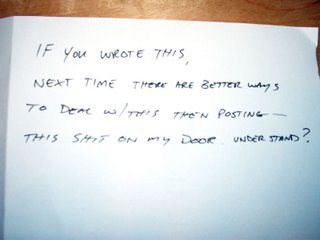 IF YOU WROTE THIS,
NEXT TIME THERE ARE BETTER WAYS
TO DEAL W/THIS THEN POSTING —
THIS SHIT ON MY DOOR. UNDERSTAND?